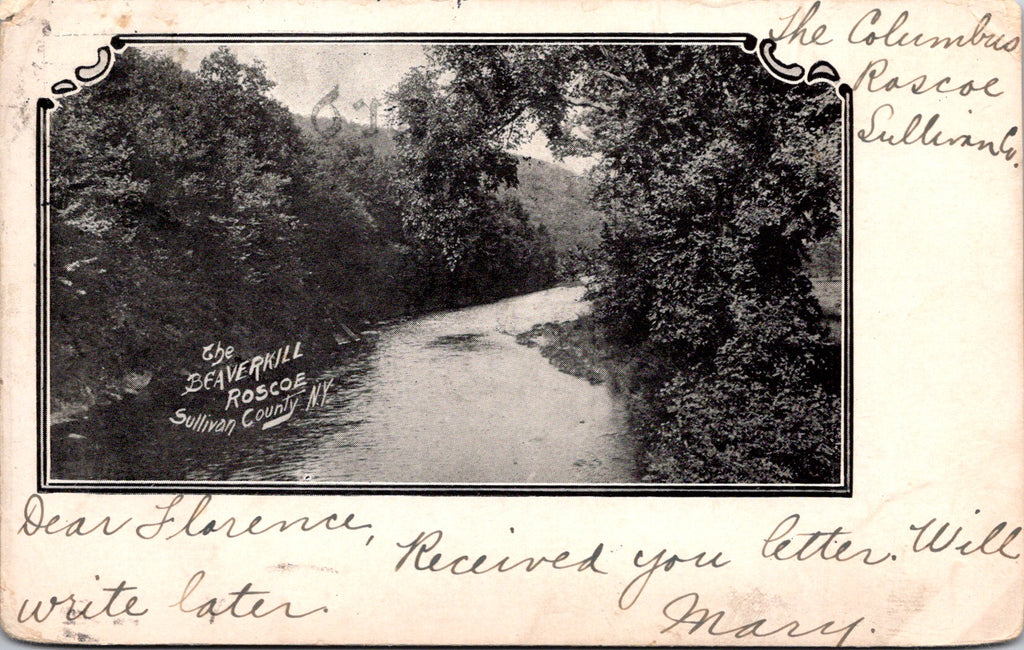 The Columbus
Roscoe
Sullivan Co.
The
BEAVERKILL
ROSCOE
Sullivan County N.Y.
Dear Florence,
Received you letter. Will
write later.
Mary.